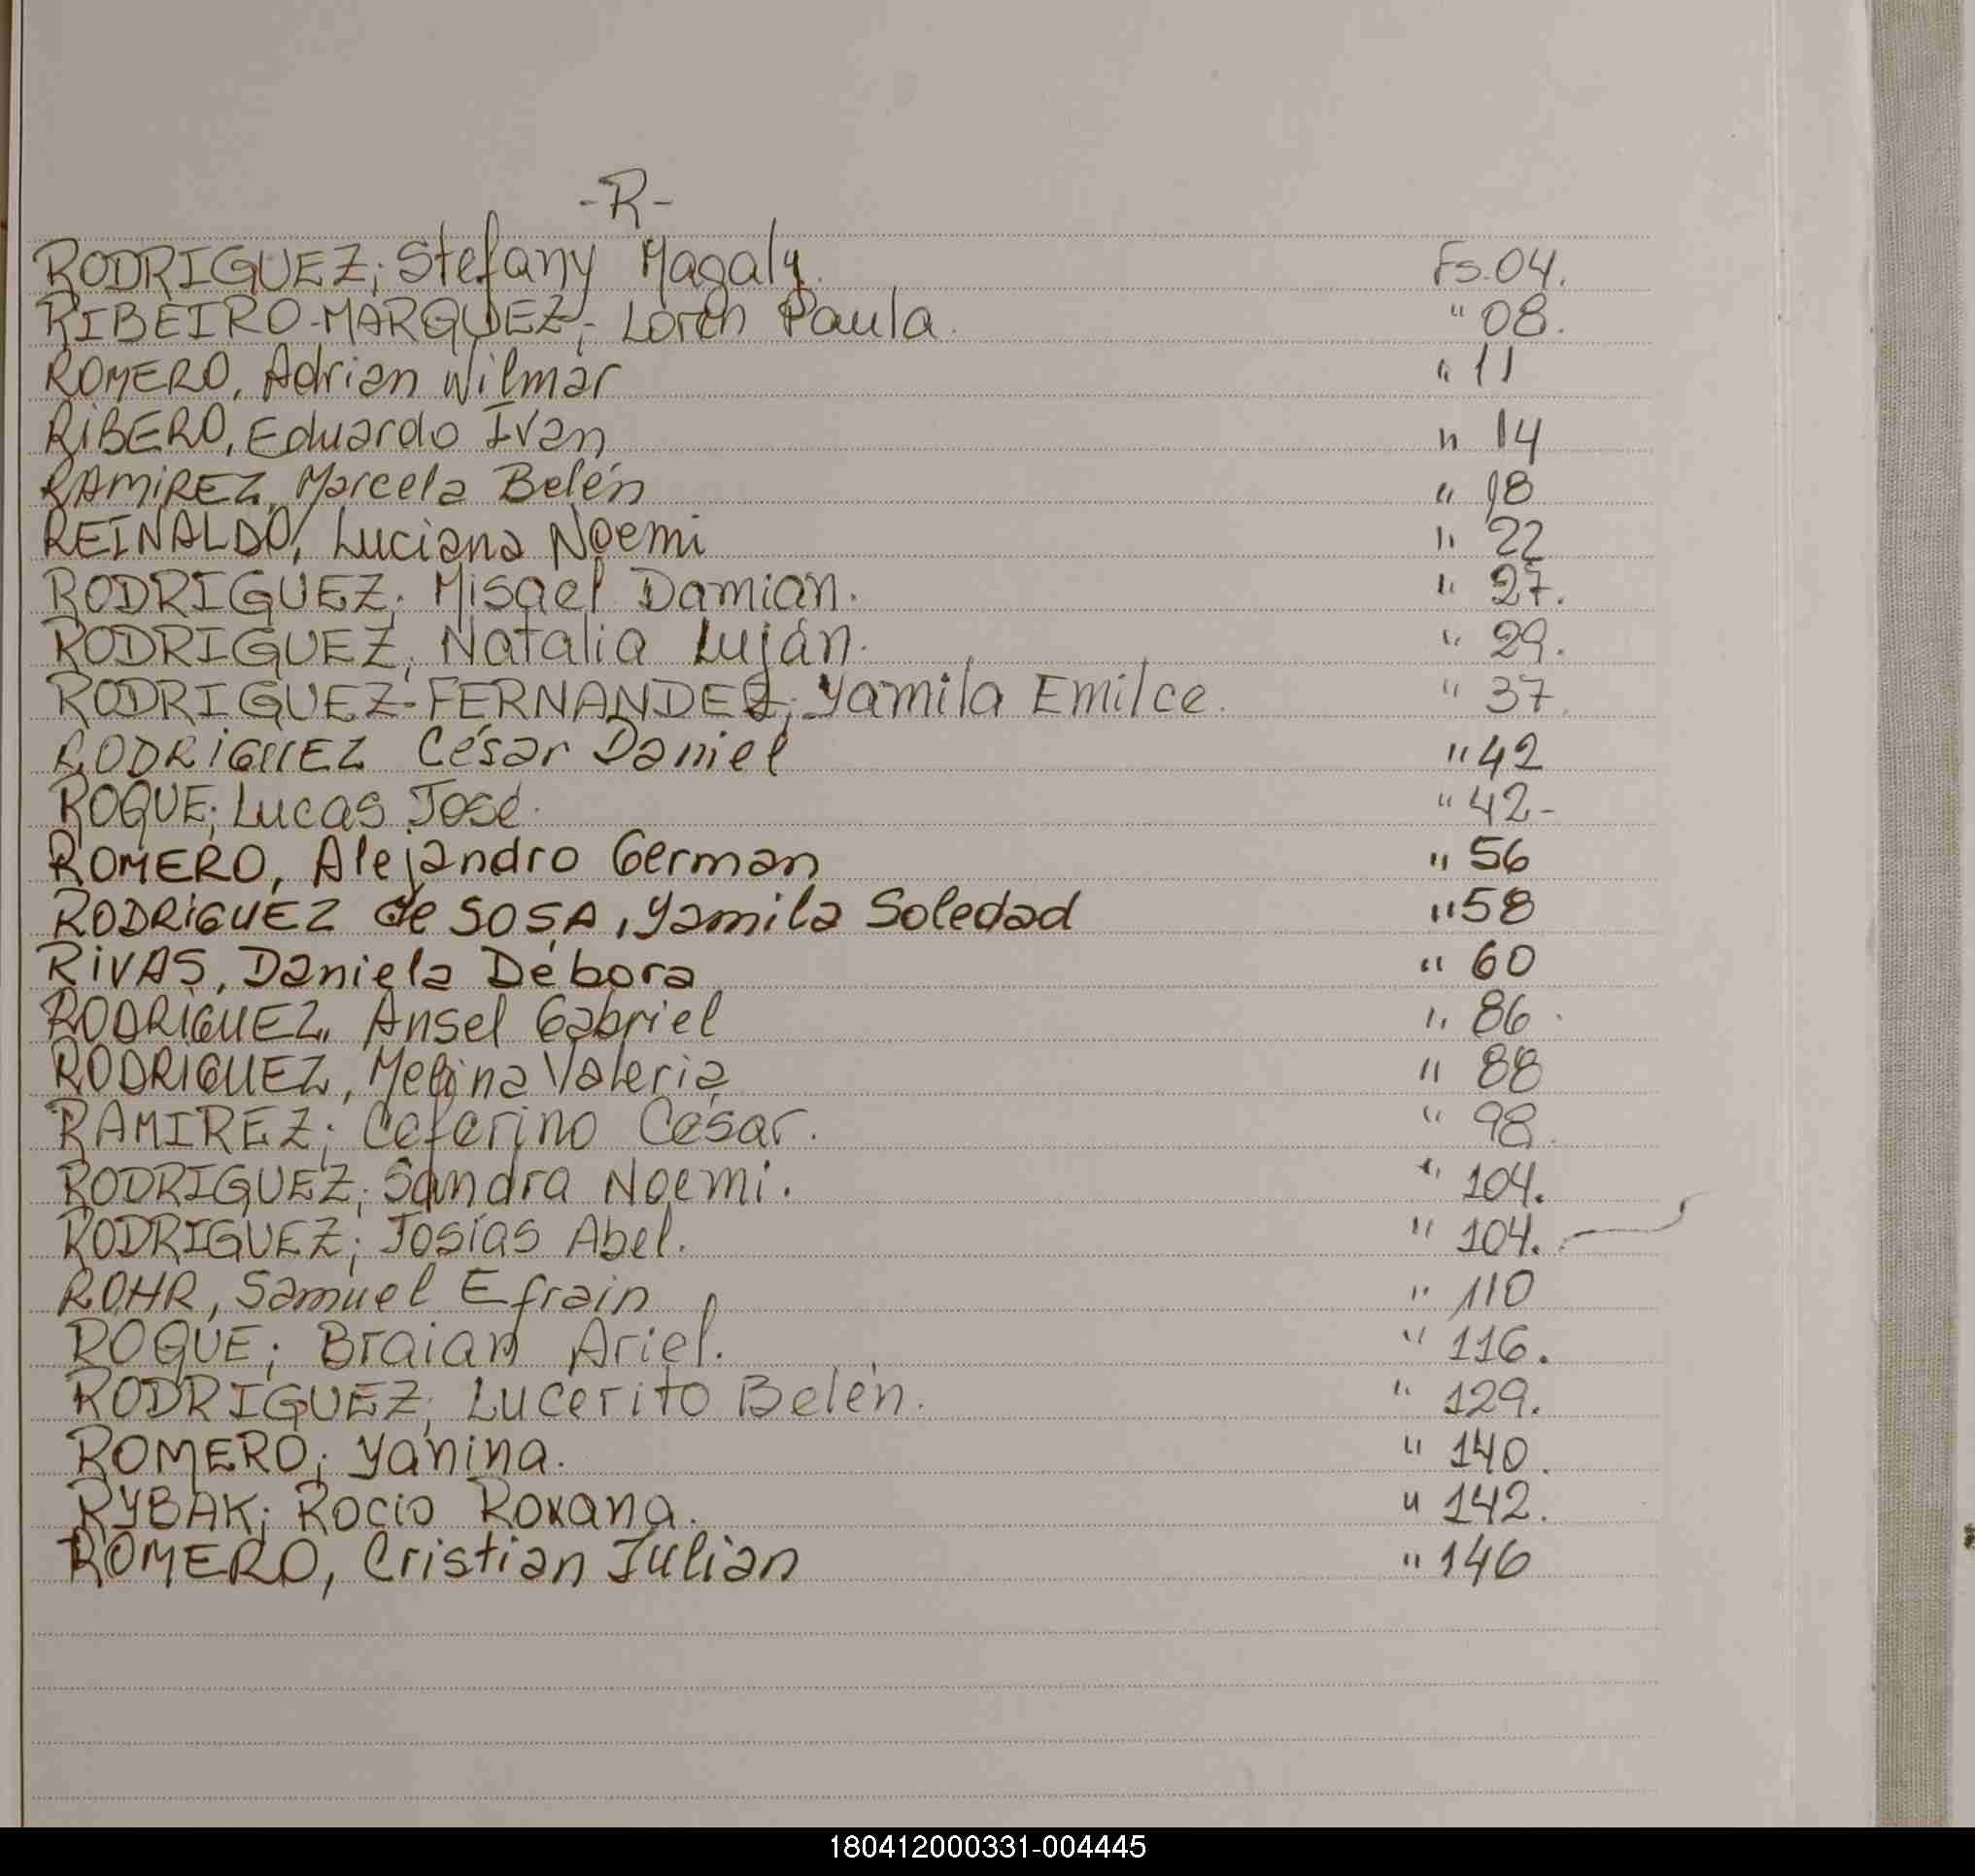 -R-
RODRIGUEZ; Stefany Magaly. Fs. 04.
RIBEIRO-MARQUEZ; Loren Paula. " 08.
ROMERO, Adrian Wilmar " 11
RIBERO, Eduardo Ivan " 14
RAMIREZ, Marcela Belén " 18
REINALDO, Luciana Noemi " 22
RODRIGUEZ; Misael Damián. " 27.
RODRIGUEZ; Natalia Luján. " 29.
RODRIGUEZ-FERNANDEZ; Yamila Emilce. " 37.
RODRIGUEZ César Daniel " 42
ROQUE; Lucas José. " 42-
ROMERO, Alejandro German " 56
RODRIGUEZ de SOSA, Yamila Soledad " 58
RIVAS, Daniela Débora " 60
RODRIGUEZ, Ansel Gabriel " 86
RODRIGUEZ, Melina Valeria " 88
RAMIREZ; Ceferino César. " 98.
RODRIGUEZ; Sandra Noemi. " 104.
RODRIGUEZ; Josías Abel. " 104.
ROHR, Samuel Efrain " 110
ROQUE; Braian Ariel. " 116.
RODRIGUEZ; Lucerito Belén. " 129.
ROMERO; Yanina. " 140.
RYBAK; Rocío Roxana. " 142.
ROMERO, Cristian Julian " 146
180412000331-004445